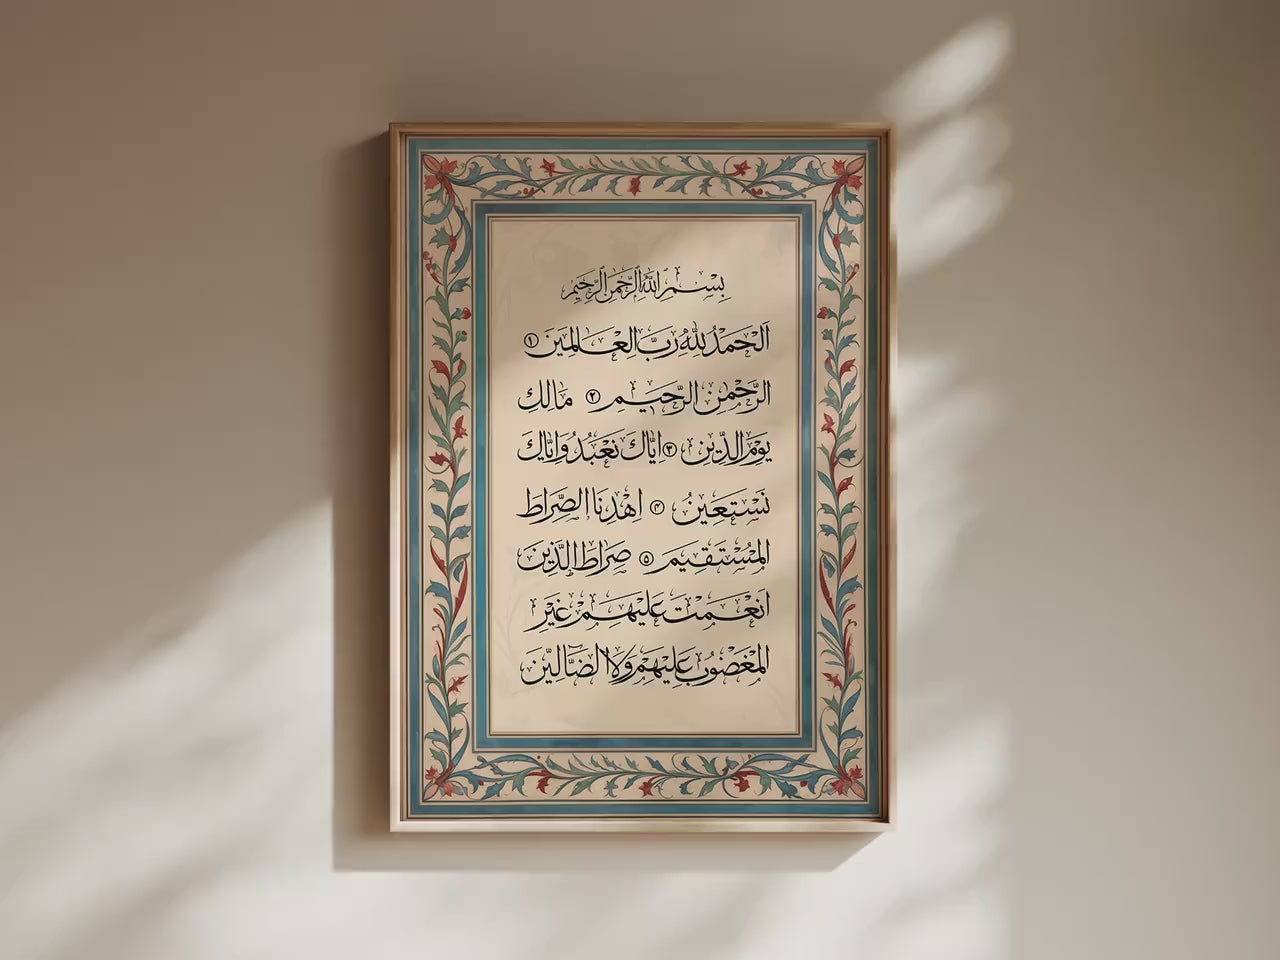 بِسْمِ اللهِ الرَّحْمٰنِ الرَّحِيْمِ
اَلْحَمْدُ لِلّٰهِ رَبِّ الْعَالَمِيْنَ ١
الرَّحْمٰنِ الرَّحِيْمِ ٢ مَالِكِ
يَوْمِ الدِّيْنِ ٣ اِيَّاكَ نَعْبُدُ وَاِيَّاكَ
نَسْتَعِيْنُ ۴ اِهْدِنَا الصِّرَاطَ
الْمُسْتَقِيْمَ ۵ صِرَاطَ الَّذِيْنَ
اَنْعَمْتَ عَلَيْهِمْ غَيْرِ
الْمَغْضُوْبِ عَلَيْهِمْ وَلَا الضَّالِّيْنَ